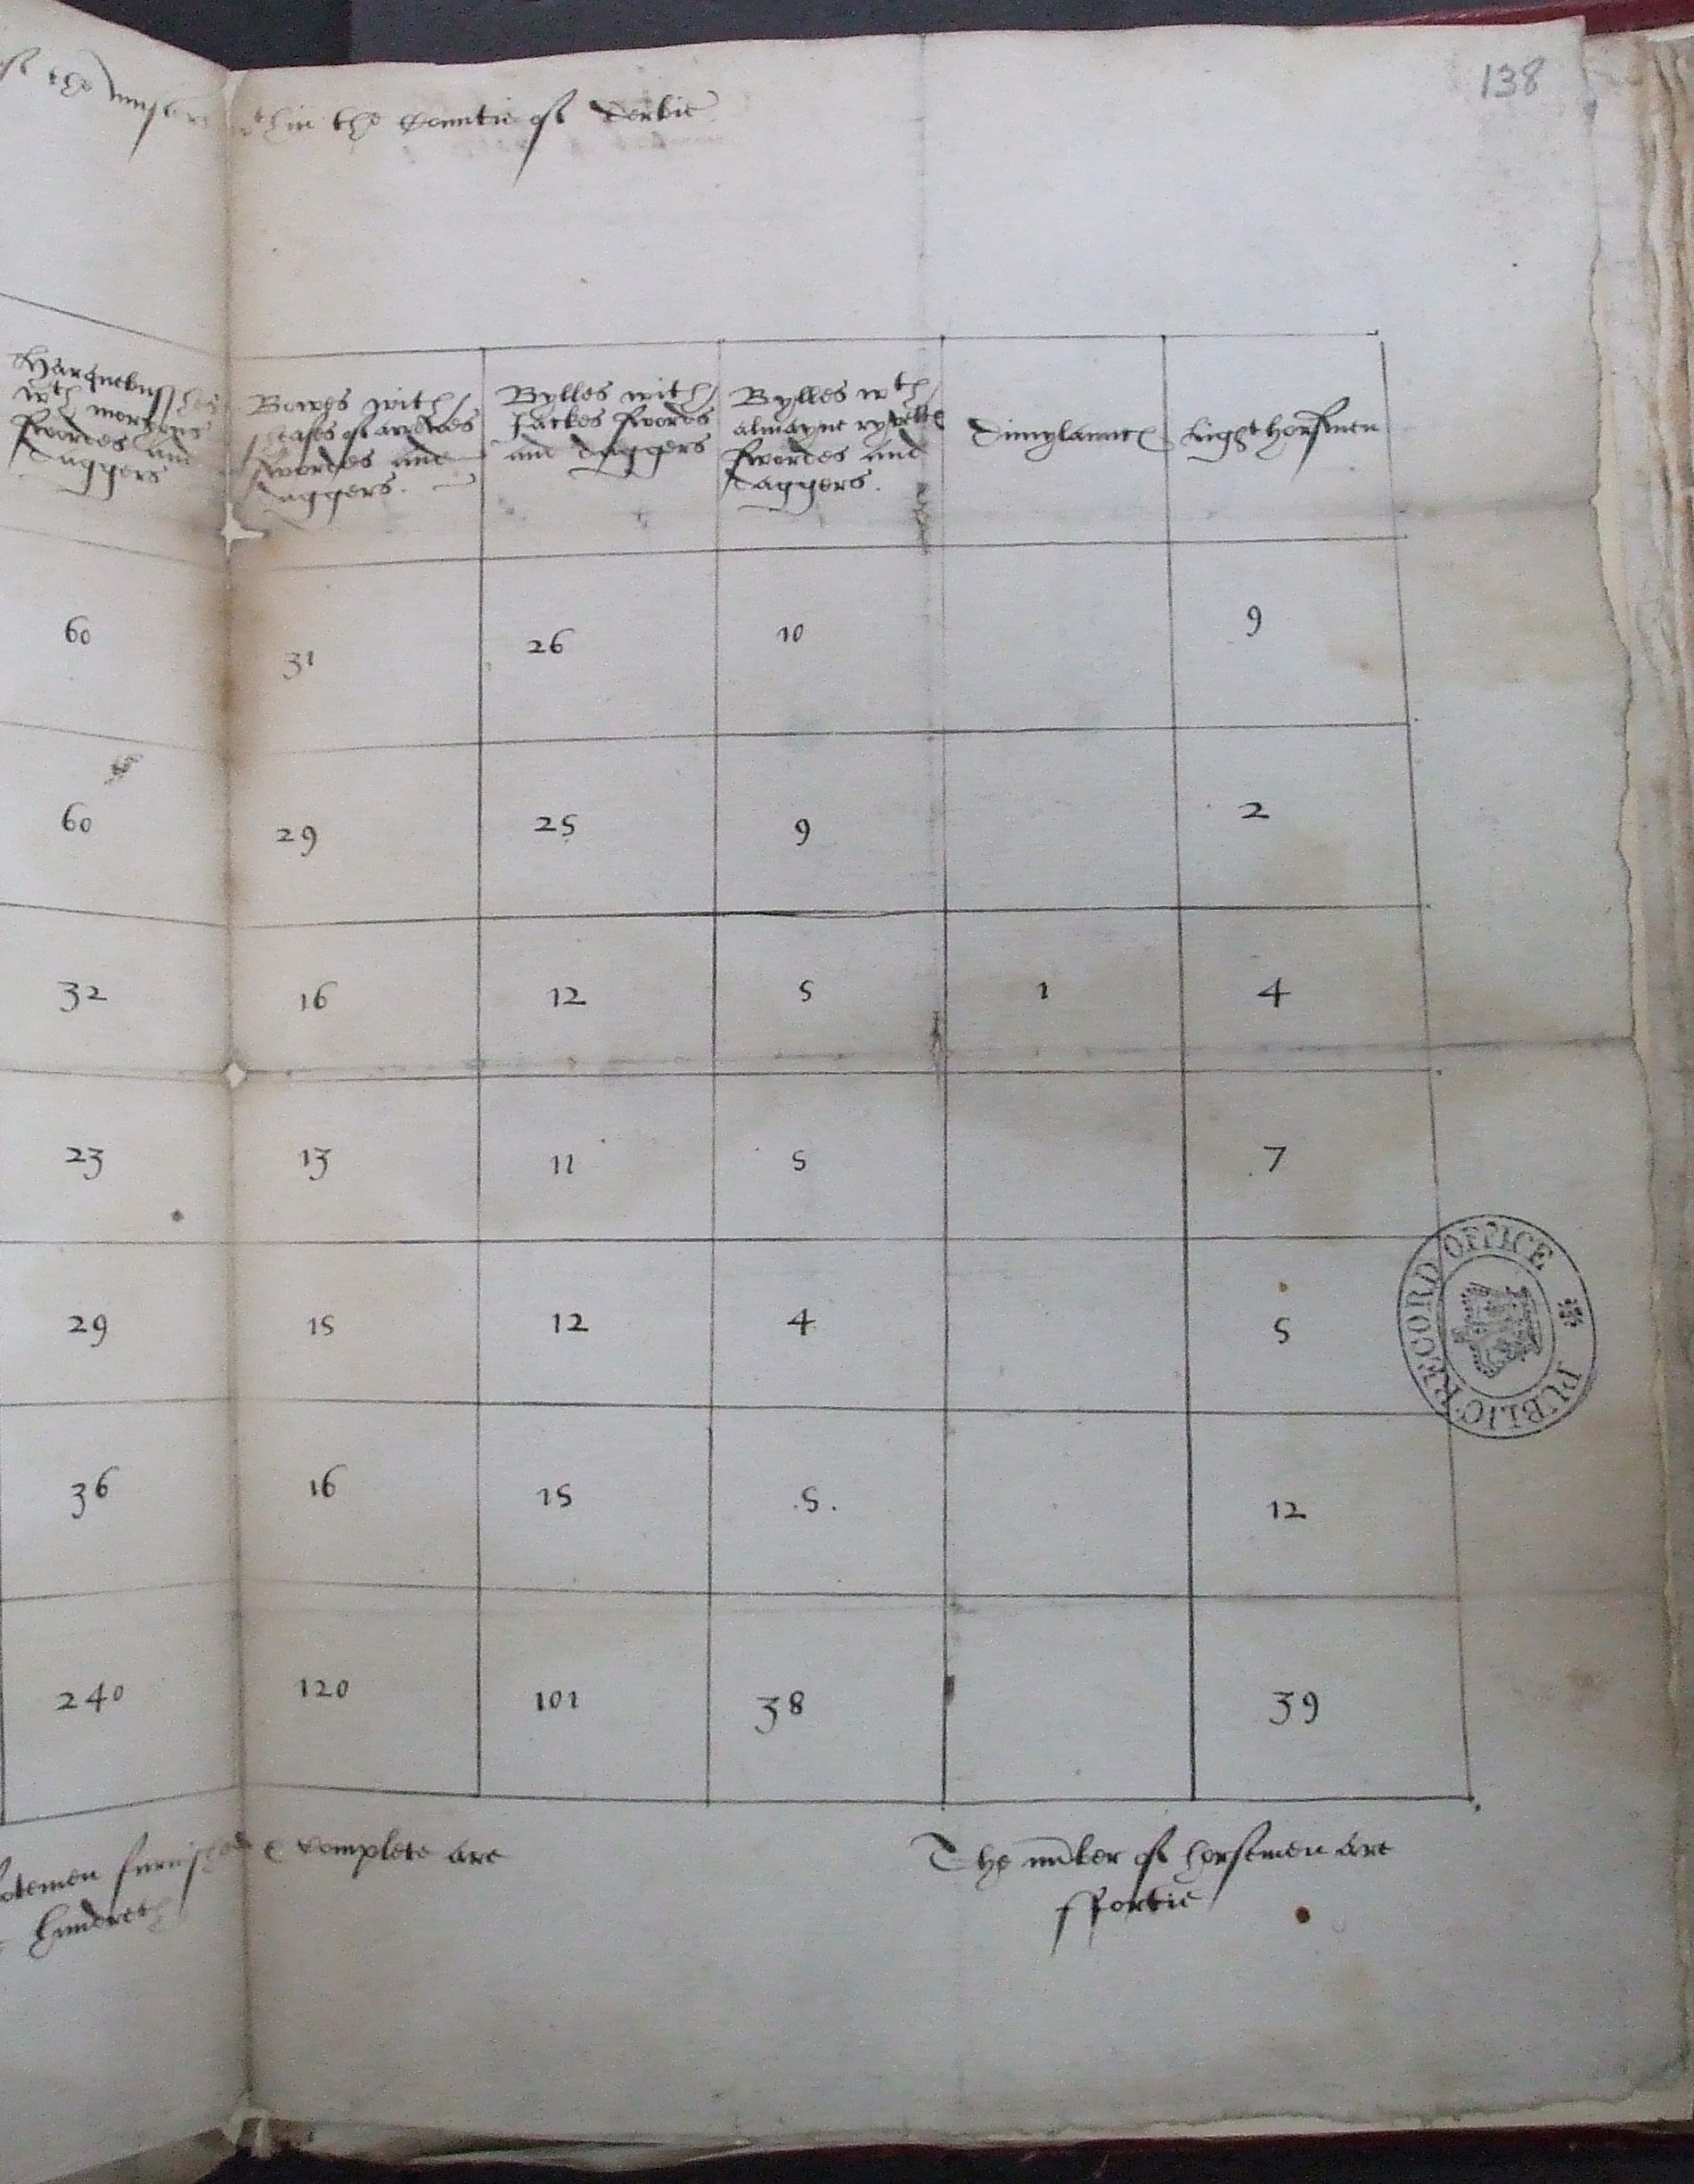 138
the within the Countie of Derbie
Harquebusshes
wth moryans
swordes and
daggers
Bowes with
sheafes of arrowes
swordes and
daggers.
Bylles with
Jackes swordes
and daggers
Bylles wth
almayne ryvettes
swordes and
daggers.
Dimylaunces
Lighthorsmen
60 31 26 10 9
60 29 25 9 2
32 16 12 5 1 4
23 13 11 5 7
29 15 12 4 5
36 16 15 .5. 12
240 120 101 38 39
furnished & complete are
hundreth
The nũber of horsemen are
ffortie
PUBLIC RECORD OFFICE